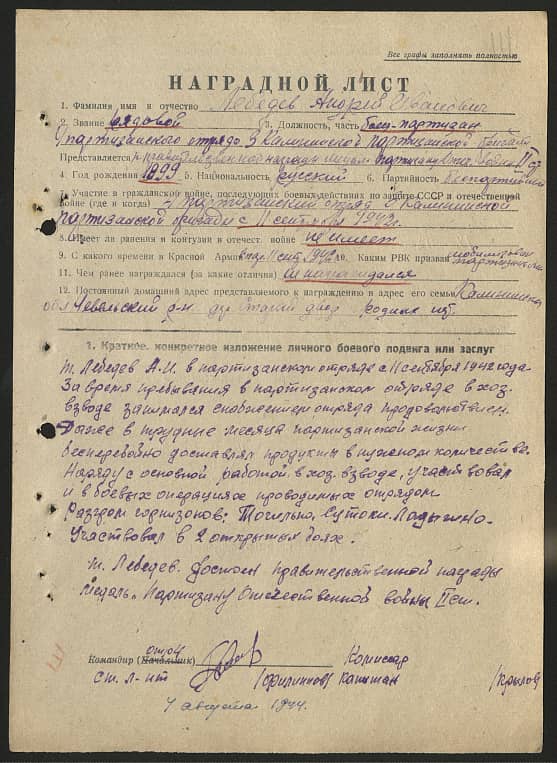 Все графы заполнять полностью
НАГРАДНОЙ ЛИСТ
1. Фамилия имя и отчество Лебедев Андрей Иванович
2. Звание рядовой 3. Должность, часть боец-партизан
партизанского отряда 3 Калининской партизанской бригады
Представляется к правительственной награде медали „Партизану Отеч. войны II ст.
4. Год рождения 1899 5. Национальность русский 6. Партийность беспартийный
7. Участие в гражданской войне, последующих боевых действиях по защите СССР и отечественной
войне (где и когда) партизанский отряд Калининской
партизанской бригады с 11 сентября 1942г.
8. Имеет ли ранения и контузии в отечест. войне не имеет
9. С какого времени в Красной Армии с 11 сент. 1942 10. Каким РВК призван мобилизован
партизанами
11. Чем ранее награждался (за какие отличия) не награждался
12. Постоянный домашний адрес представляемого к награждению и адрес его семьи Калининская
обл. р-н дер. Старый двор родных нет.
1. Краткое, конкретное изложение личного боевого подвига или заслуг
т. Лебедев А.И. в партизанском отряде с 11 сентября 1942 года.
За время пребывания в партизанском отряде в хоз.
взводе занимался снабжением отряда продовольствием.
Даже в трудные месяца партизанской жизни
бесперебойно доставлял продукты в нужном количестве.
Наряду с основной работой в хоз. взводе, участвовал
и в боевых операциях проводимых отрядом
Разгром гарнизонов: Точильно, Сутоки, Ладыжно.
Участвовал в 2 открытых боях.
т. Лебедев. достоин правительственной награды
медаль „Партизану Отечественной войны II ст.
отряд
Командир (Начальник) Комиссар
ст. л-нт /Филиппов/ капитан /Крылов/
4 августа 1944.